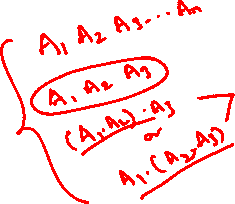 A₁ A₂ A₃ ... Aₙ
A₁ A₂ A₃
(A₁.A₂).A₃
or
A₁.(A₂.A₃)